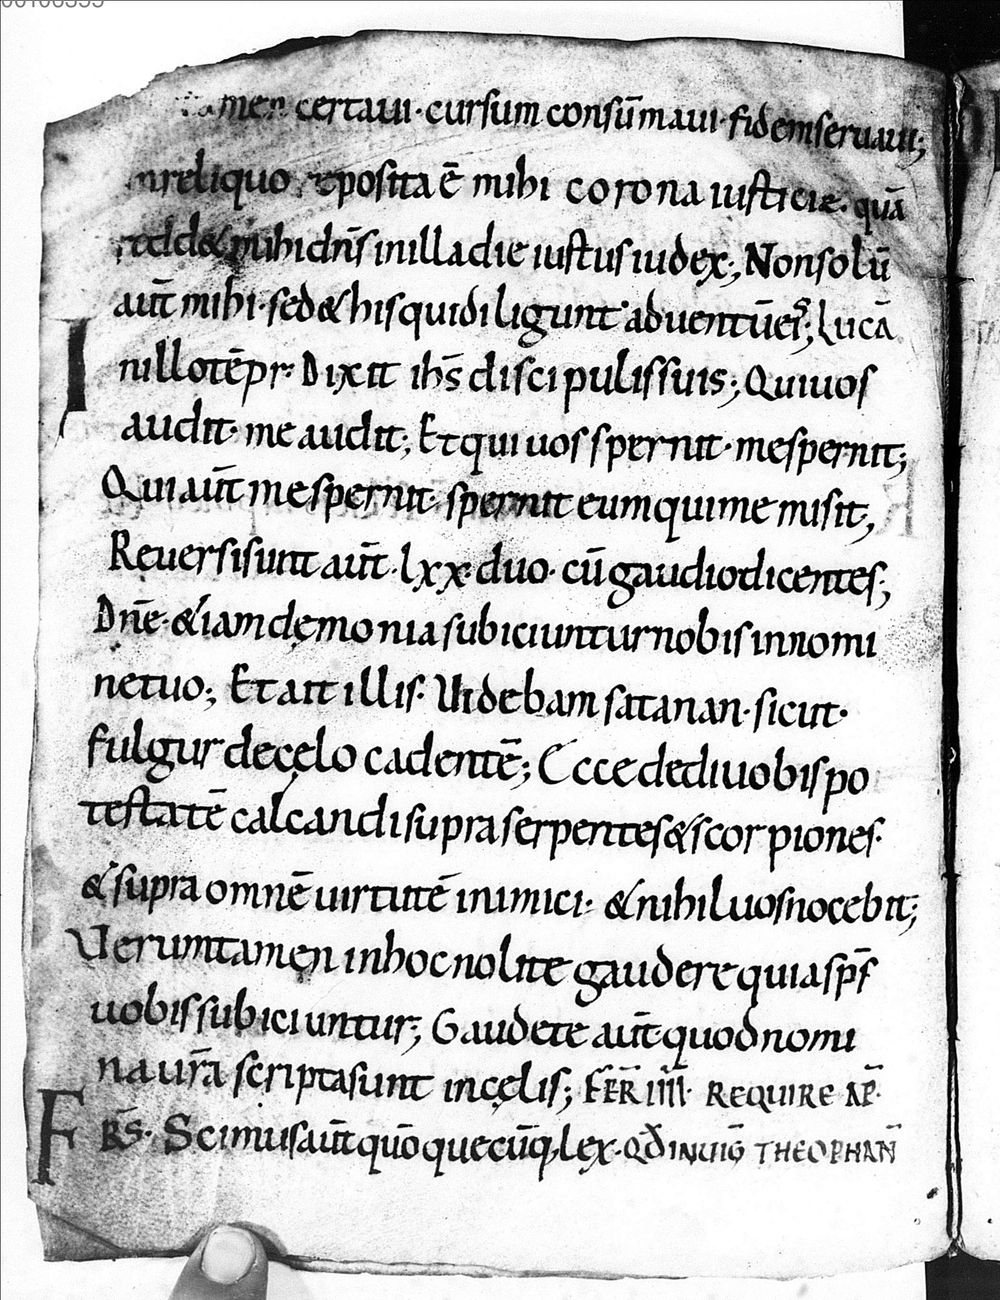 tamen certaui · cursum consūmaui · fidemseruaui;
Inreliquo reposita ē mihi corona iusticie · quā
redd& mihi dn̄s inilla die iustus iudex; Nonsolū
aūt mihi · sed & hisquidiligunt aduentū ei'; Lucā
Inillotēpr· Dixit ih̄s discipulissuis; Quiuos
audit · me audit; Etqui uos spernit · mespernit;
Qui aūt mespernit · spernit eumquime misit;
Reuersisunt aūt · lxx · duo · cū gaudiodicentes;
Dn̄e · &iam demonia subiciunturnobis innomi
netuo; Et ait illis · Uidebam satanan · sicut ·
fulgur decęlo cadentē; Ecce dediuobis po
testatē calcandi supra serpentes & scorpiones ·
& supra omnē uirtutē inimici · & nihil uosnocebit;
Uerumtamen inhoc nolite gaudere quia sp̄s
uobis subiciuntur; Gaudete aūt quod nomi
na ur̄a scripta sunt incęlis; FER̄ IIII · REQUIRE AP̄ ·
FRS̄ · Scimus aūt quō quecūq; lex · QD̄ INUIḠ THEOPHAN̄